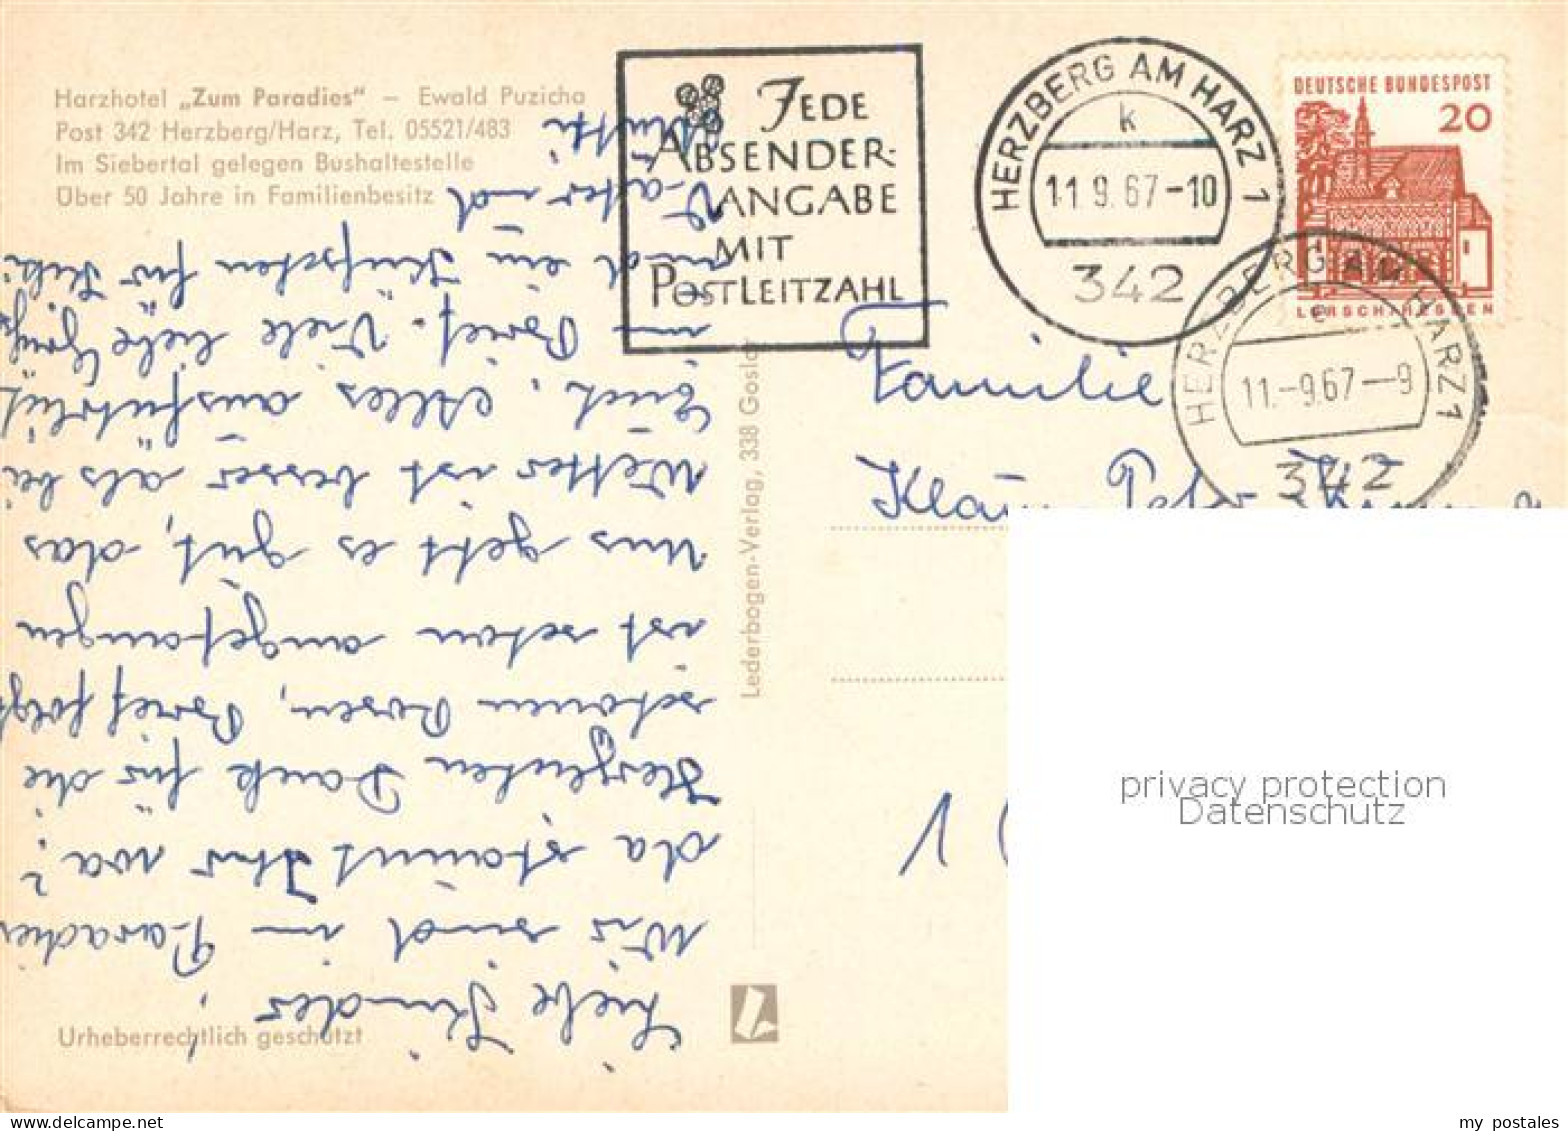 Harzhotel „Zum Paradies“ – Ewald Puzicha
Post 342 Herzberg/Harz, Tel. 05521/483
Im Siebertal gelegen Bushaltestelle
Über 50 Jahre in Familienbesitz
JEDE
ABSENDER-
ANGABE
MIT
POSTLEITZAHL
HERZBERG AM HARZ 1
k
11.9.67-10
342
DEUTSCHE BUNDESPOST
20
LORSCH/HESSEN
HERZBERG AM HARZ 1
e
11.-9.67--9
342
Liebe Kinder!
Wir sind im Paradies
da staunt Ihr wa?
Herzlichen Dank für die
schönen Rosen, Brief folgt
ist schon angefangen
Uns geht es gut, das
Wetter ist besser als bei
Euch. Alles ausführlich
im Brief. Viele liebe Grüße
und ein Küsschen für
Vater und
Mutti
Familie
Klaus Peter
1
Lederbogen-Verlag, 338 Goslar
Urheberrechtlich geschützt
privacy protection
Datenschutz
my postales